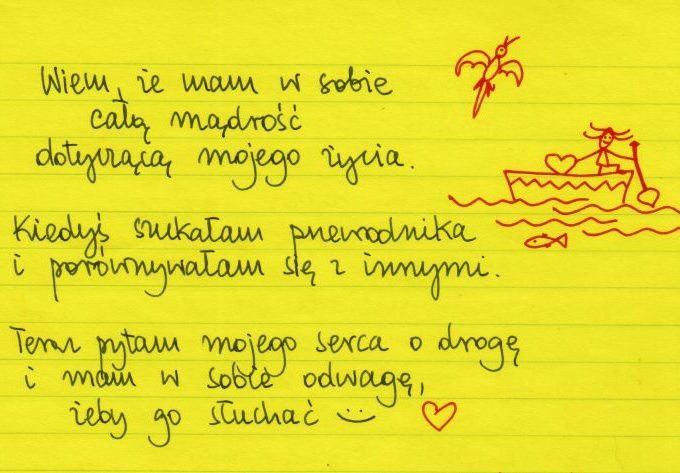 Wiem, że mam w sobie
całą mądrość
dotyczącą mojego życia.
Kiedyś szukałam przewodnika
i porównywałam się z innymi.
Teraz pytam mojego serca o drogę
i mam w sobie odwagę,
żeby go słuchać